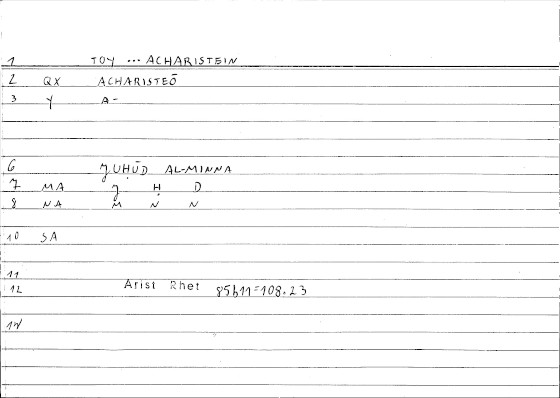 1 TOY ... ACHARISTEIN
2 QX ACHARISTEŌ
3 Y A-
6 ǦUḤŪD AL-MINNA
7 MA Ǧ Ḥ D
8 NA M N N
10 SA
11
12 Arist Rhet 85b11=108.23
14